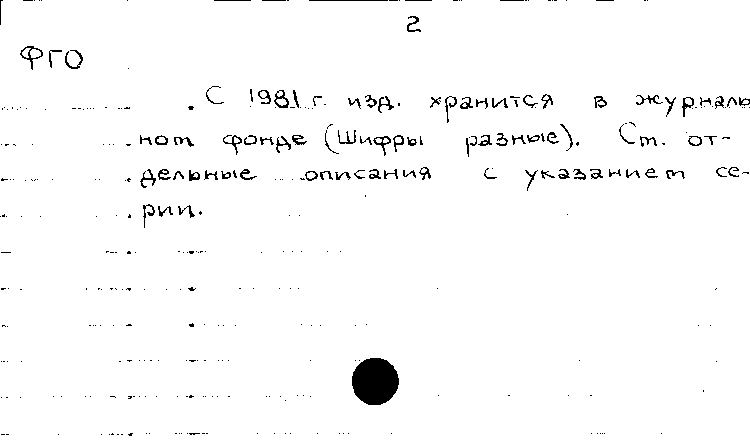 2
ФГО
С 1981 г. изд. хранится в журналь
ном фонде (Шифры разные). См. от-
дельные описания с указанием се-
рии.